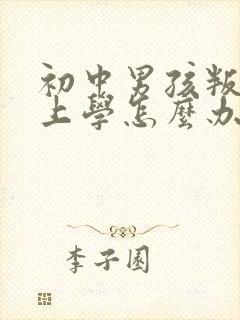 初中男孩叛
上學怎麼办
李子園